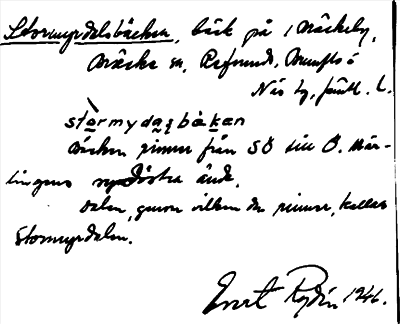 Stormyrdalsbäcken, bäck på / Mäckeby,
Mäcke m, Refsunds,
Näs by, Jämtl. l.
stòrmydaḷsbäkan
Bäcken rinner från SÖ till Ö. Mär-
lingens sydöstra ände.
Dalen, genom vilken den rinner, kallas
Stormyrdalen.
Evert Rydén, 1946.